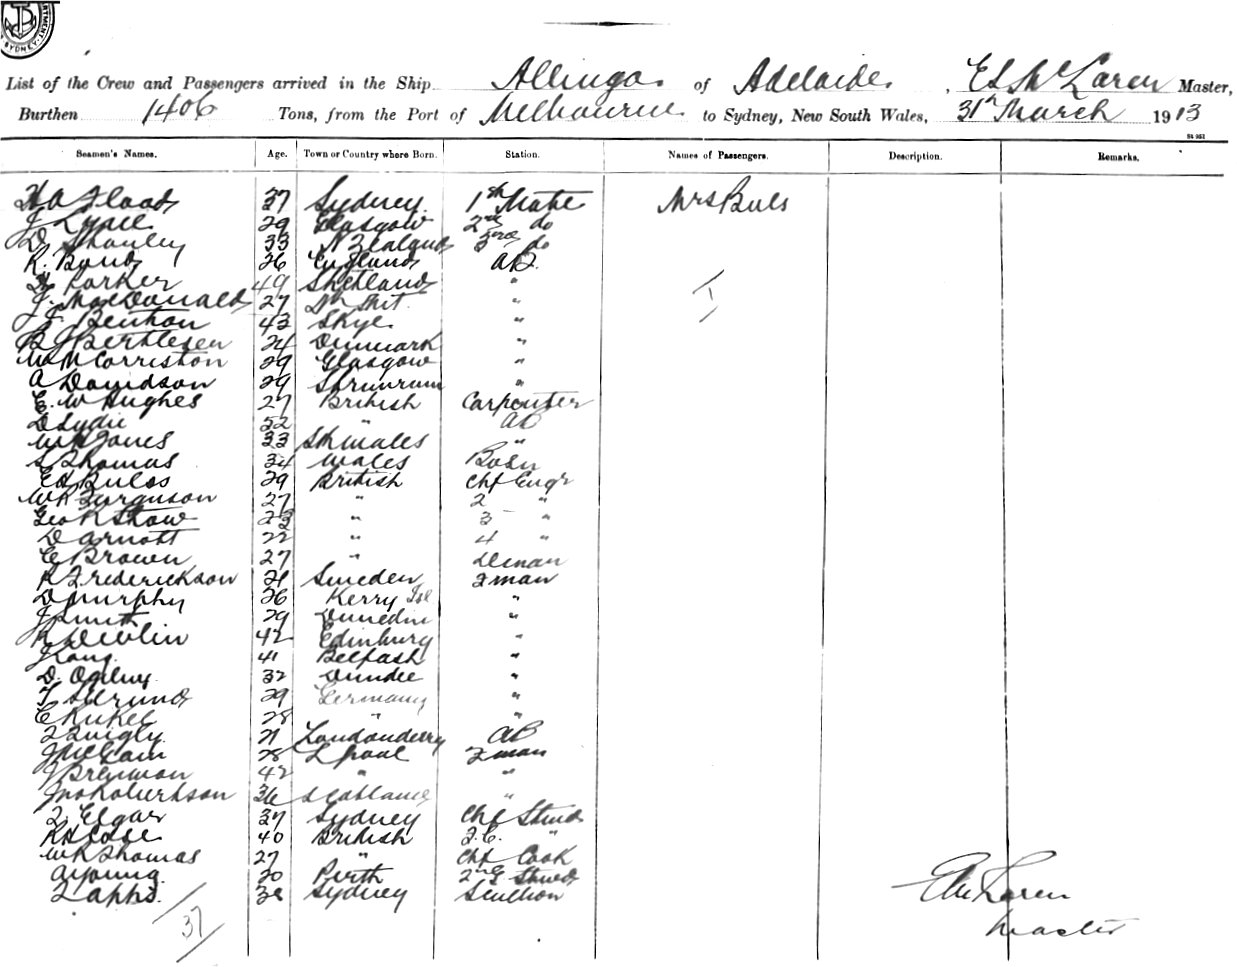 SYDNEY
List of the Crew and Passengers arrived in the Ship Allinga of Adelaide, E L McLaren Master,
Burthen 1406 Tons, from the Port of Melbourne to Sydney, New South Wales, 31st March 1913
St 951
Seamen's Names. Age. Town or Country where Born. Station. Names of Passengers. Description. Remarks.
Flood 37 Sydney 1st Mate Mrs Buls
J Lyall 29 Glasgow 2nd do
D Shanley 33 N Zealand 3rd do
R. Bond 26 England AB.
Parker 49 Shetland "
J. MacDonald 27 "
Benthon 43 Skye "
B J Berthlesen 24 Denmark "
Wm McCorriston 29 Glasgow "
A Davidson 29 "
E. W Hughes 27 British Carpenter
D Lydie 32 " AB
W H Jones 33 Sth Wales "
S Thomas 34 Wales Bosn
Ed Bulss 29 British Chf Engr
W R Ferguson 27 " 2 "
Geo R Shaw 23 " 3 "
D Arnott 22 " 4 "
E Brown 27 " Dman
R Frederickson 21 Sweden Fman
D Murphy 26 Kerry Isl "
J Smith 29 Dunedin "
R Devlin 42 Edinburg "
J Lang. 41 Belfast "
D. Ogilvy. 32 Dundee "
29 Germany "
E Kukel 28 " "
F Quigly. 21 Londonderry AB
J McGain 28 L pool Fman
J Brennan 42 " "
Jno Robertson 36 Scotland "
F. Elgar 37 Sydney Chf Stwd
40 British F.C. "
W R Thomas 27 " Chf Cook
A Young. 20 Perth 2nd Stwd
F Apps. 38 Sydney Scullion
37
E McLaren
Master